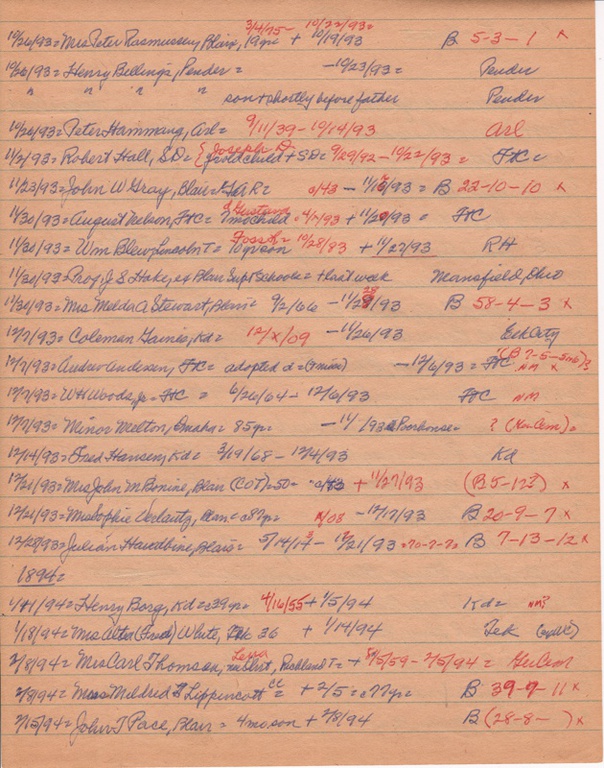 3/4/75- 10/22/93=
10/26/93= Mrs Peter Rasmussen, Blair, 19yrs + 10/19/93 B 5-3-1 x
10/26/93= Henry Bellings, Pender = -10/23/93= Pender
" " " " son + shortly before father Pender
10/26/93= Peter Hammang, Arl= 9/11/39-10/14/93 Arl
11/2/93= Robert Hall, SD= { Joseph D. child + SD= 9/29/92-10/22/93 = FtC=
11/23/93= John W Gray, Blair= GAR= 0/43 - 11/93= B 22-10-10 x
11/30/93= August Nelson, FtC= 7mochild Gustava = 4/ /93 + 11/2 /93 = FtC
11/30/93= Wm Blew, Lincoln T= 10yr son = 10/28/83 + 11/27/93 RH
11/30/93= Prof J S Hake, ex Blair Supt Schools= + last week Mansfield, Ohio
11/30/93= Mrs. Melda A Stewart, Blair= 9/2/66 - 11/28/93 B 58-4-3 x
12/7/93= Coleman Gaines, Kd= 12/x/09 - 11/26/93 Elk City
12/7/93= Andrew Andersen, FtC= adopted d= (7 miss) -12/6/93= FtC NM x (B ?-5-5 )?
12/7/93= W H Woods, Jr= FtC = 6/26/64-12/6/93 FtC NM
12/7/93= Minor Melton, Omaha= 85yr= -11/ /93 @ Poorhouse= ? ( Cem)=
12/14/93= Fred Hansen, Kd= 3/19/68-12/4/93 Kd
12/21/93= Mrs John M Bonine, Blair (COT)=50= + 11/27/93 (B5-12?) x
12/21/93= Mrs Sophie , Blair= c87yr= /08 - 12/17/93 B 20-9-7 x
12/28/93= Julian Hardbine, Blair= 5/14/1 - 12/21/93 =70-7-7= B 7-13-12 x
1894=
1/11/94= Henry Borg, Kd= c39yr= 4/16/55 + 1/5/94 Kd= NM?
1/18/94= Mrs Alter (Fred) White, Tek 36 + 1/14/94 Tek
2/8/94= Mrs Carl Thomsen, Lena, Richland T= + 8/5/59-2/5/94 = Cem
2/8/94= Miss Mildred Lippincott CC = + 2/5= c77yr= B 39-9-11 x
2/15/94= John T Pace, Blair= 4mo son + 2/8/94 B (28-8- ) x